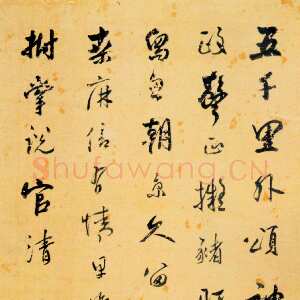 五千里外頌神
政聲正擬豬
朝京久留
桑麻信有情里
拊掌說官清
Shufawang.CN